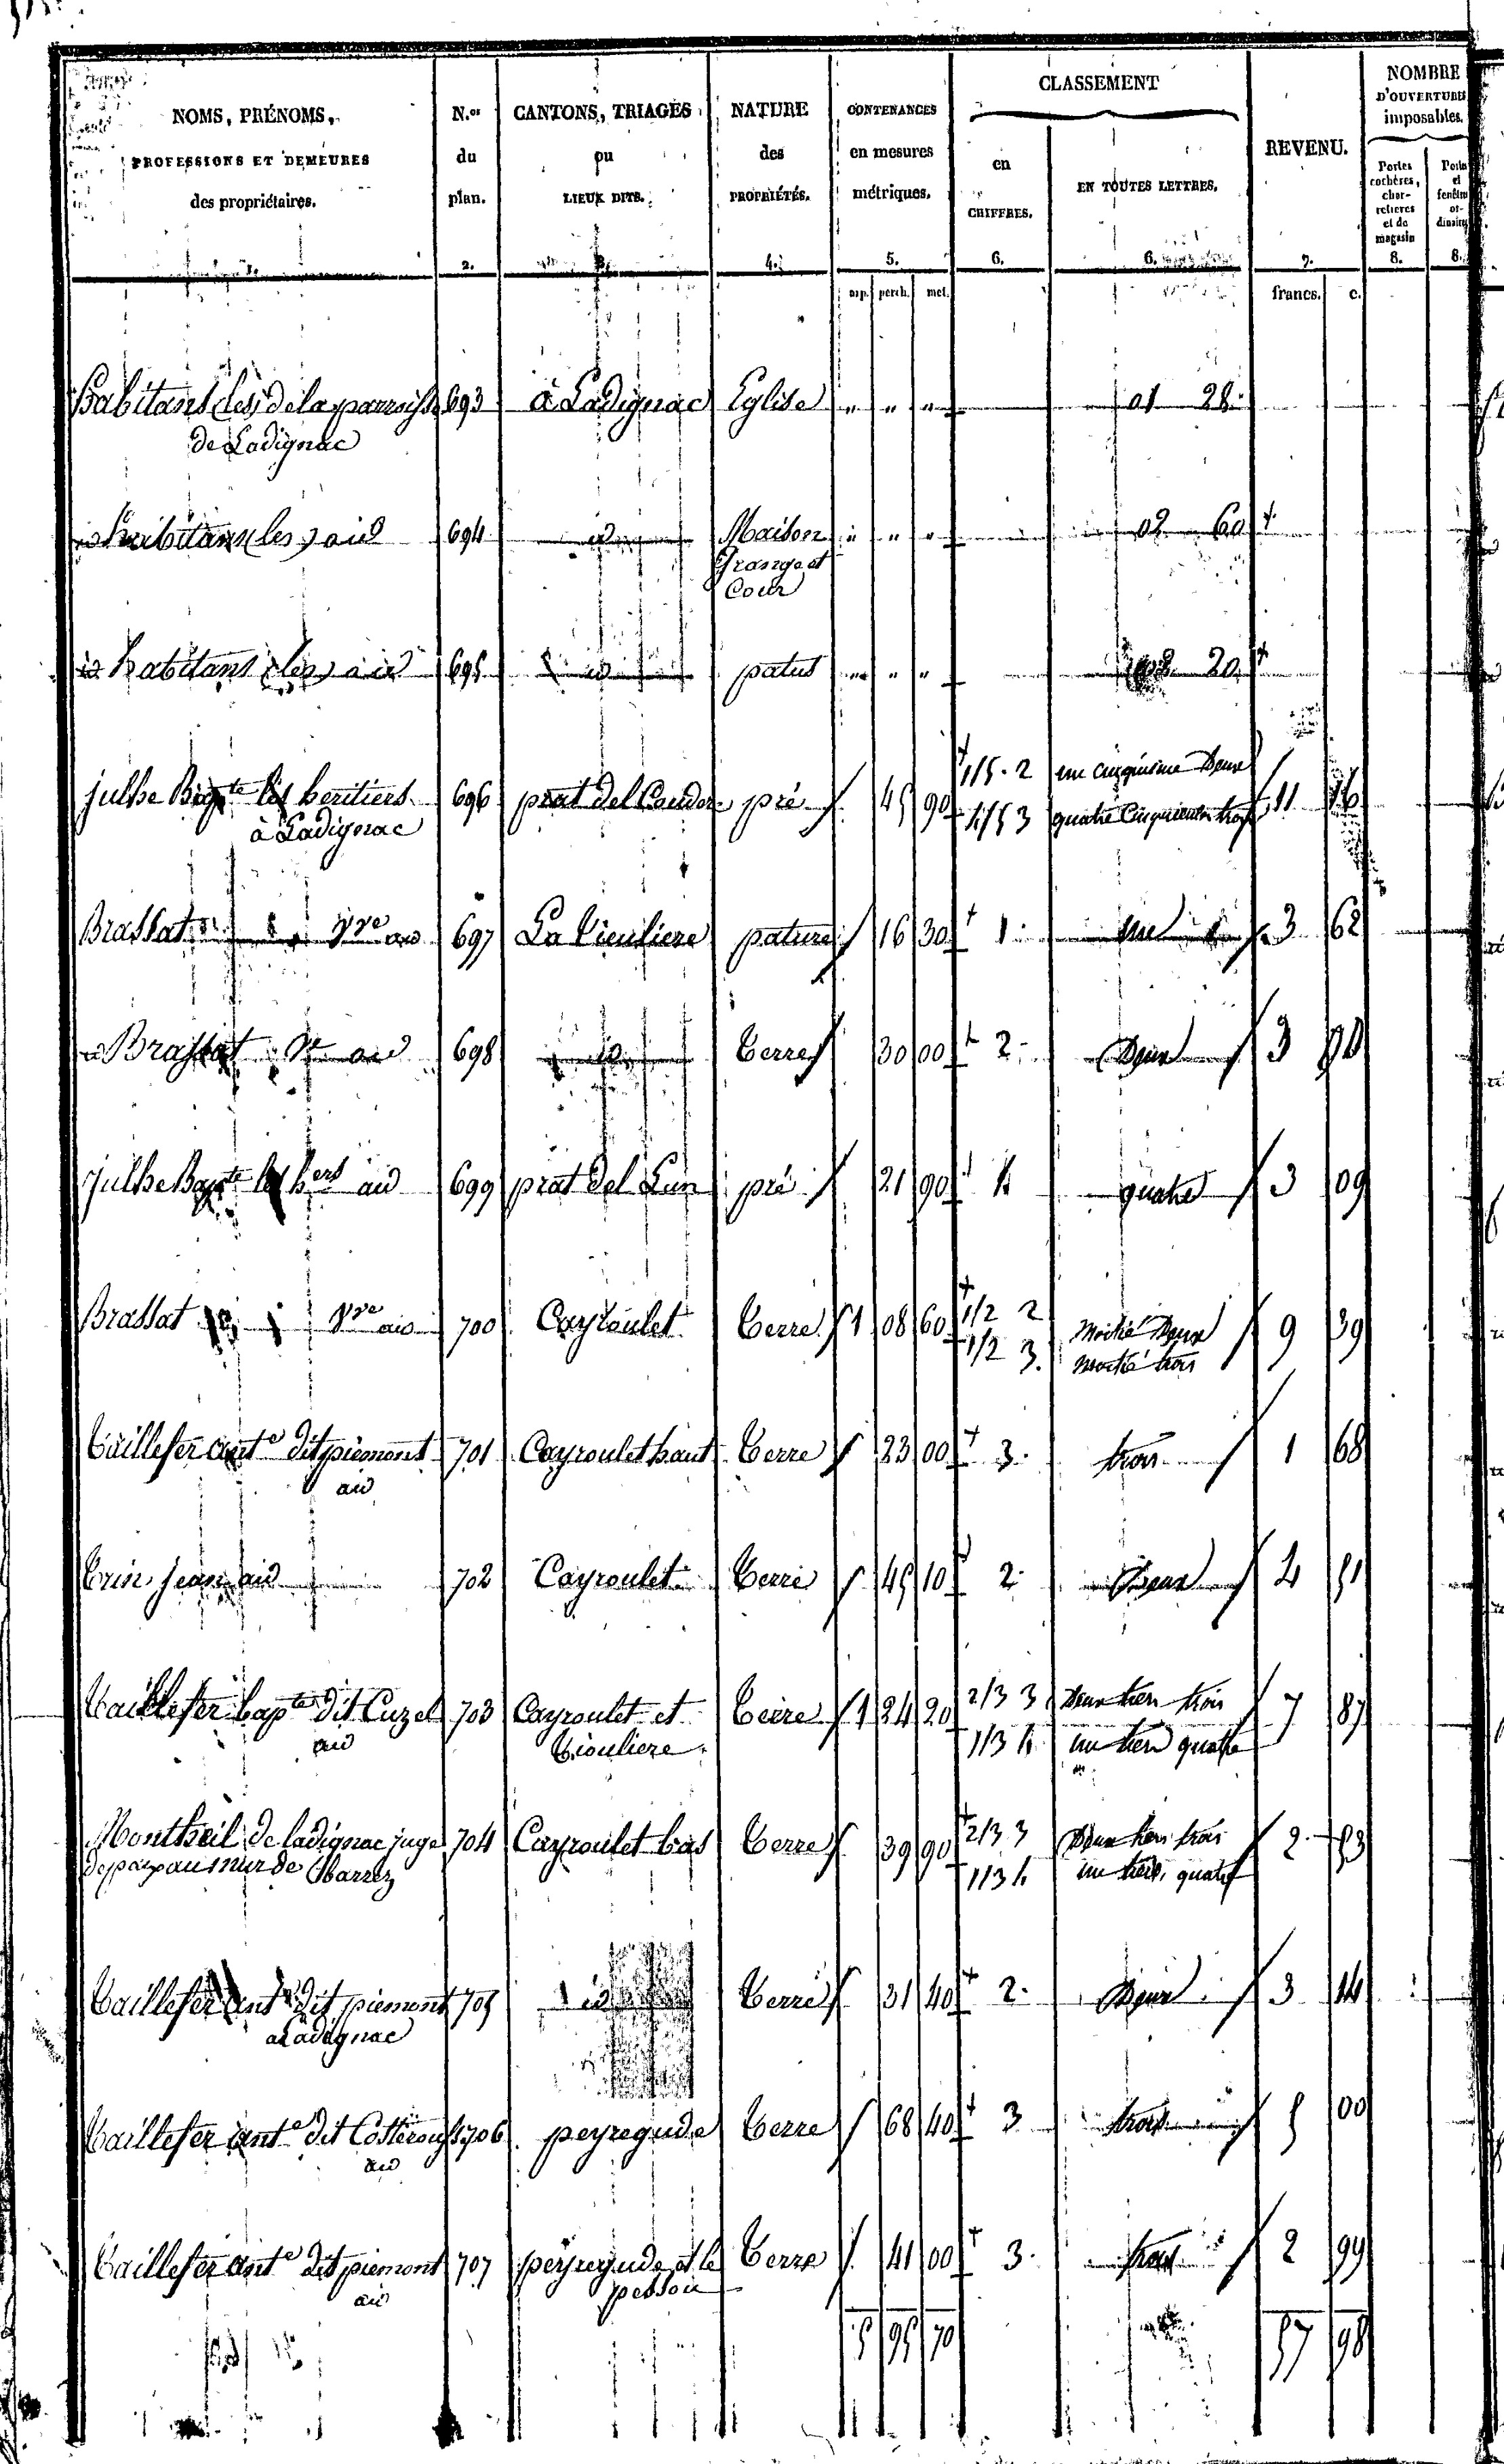 NOMS, PRÉNOMS, PROFESSIONS ET DEMEURES des propriétaires. 1.
N.os du plan. 2.
CANTONS, TRIAGES ou LIEUX DITS. 3.
NATURE des PROPRIÉTÉS. 4.
CONTENANCES en mesures métriques. 5.
CLASSEMENT
en CHIFFRES. 6.
EN TOUTES LETTRES. 6.
REVENU. 7.
NOMBRE D'OUVERTURES imposables.
Portes cochères, charretières et de magasin 8.
Portes et fenêtres ordinaires 8.
arp. perch. met. francs. c.
habitans (les) de la parroisse 693 à Ladignac Eglise " " " 01 28
de Ladignac
habitans (les) aid 694 id Maison " " " 02 60
Grange et
Cour
habitans (les) aid 695 id patus " " " 20
julhe Bapte les heritiers 696 prat del pré 45 90 1/5 2 un cinquieme Deux 11
à Ladignac 4/5 3 quatre Cinquiemes trois
Brassat aid 697 La Vieuliere pature 16 30 1 une 3 62
Brassat aid 698 id Terre 30 00 2 Deux 3
julhe Bapte les hers aid 699 prat del pré 21 90 4 quatre 3 09
Brassat aid 700 Cayroulet Terre 1 08 60 1/2 2 moitié Deux 9 39
1/2 3 moitié trois
Taillefer ante dit piemont 701 Cayroulet haut Terre 23 00 3 trois 1 68
aid
jean aid 702 Cayroulet Terre 45 10 2 Deux 4 51
Taillefer bapte dit Cuzel 703 Cayroulet et Terre 1 24 20 2/3 3 Deux tiers trois 7 87
aid 1/3 4 un tiers quatre
Montheil de ladignac juge 704 Cayroulet bas Terre 39 90 2/3 3 Deux tiers trois 2 53
de paix au mur de Barrez 1/3 4 un tiers quatre
Taillefer ante dit piemont 705 id Terre 31 40 2 Deux 3 14
a Ladignac
Taillefer ante dit 706 peyregude Terre 68 40 3 trois 5 00
aid
Taillefer ante dit piemont 707 peyregude et le Terre 41 00 3 trois 2 99
aid
5 95 70 57 98